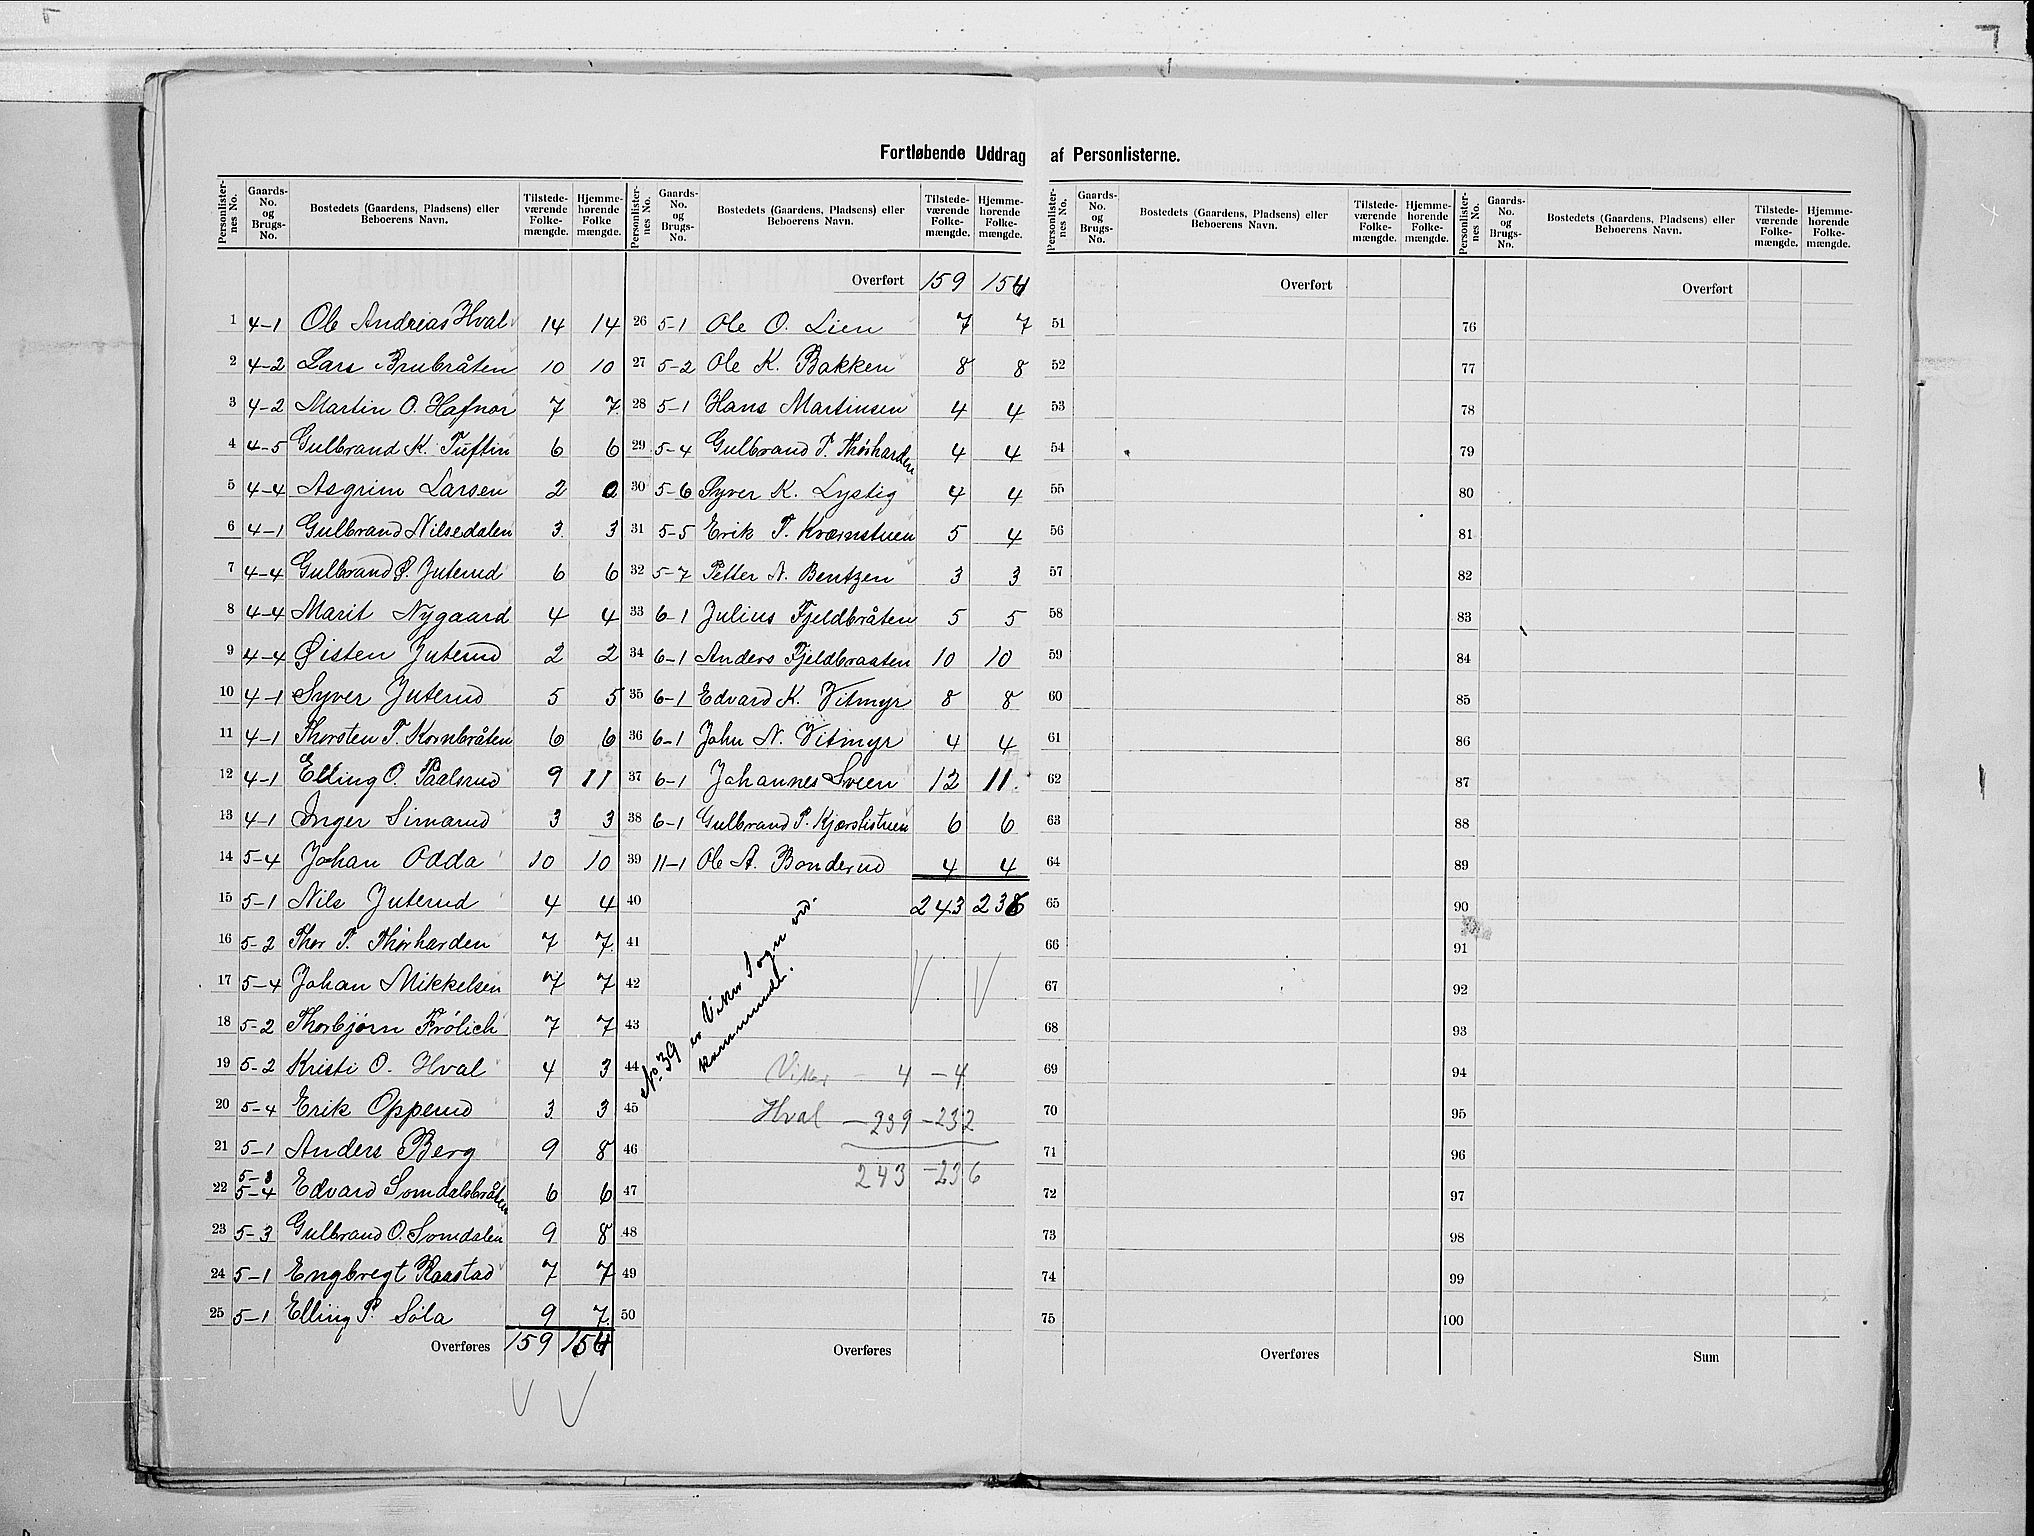 Fortløbende Uddrag af Personlisterne.
Personlister-nes No. Gaards-No. og Brugs-No. Bostedets (Gaardens, Pladsens) eller Beboerens Navn. Tilstede-værende Folke-mængde. Hjemme-hørende Folke mængde.
1 4-1 Ole Andreas Hval 14 14
2 4-2 Lars Brubråten 10 10
3 4-2 Martin O. Hafnor 7 7
4 4-5 Gulbrand K. Tuftin 6 6
5 4-4 Asgrim Larsen 2 0
6 4-1 Gulbrand Nilsedalen 3 3
7 4-4 Gulbrand Ø. Juterud 6 6
8 4-4 Marit Nygaard 4 4
9 4-4 Øisten Juterud 2 2
10 4-1 Syver Juterud 5 5
11 4-1 Thorsten T. Kornbråten 6 6
12 4-1 Elling O. Paalsrud 9 11
13 4-1 Inger Simarud 3 3
14 5-4 Johan Odda 10 10
15 5-1 Nils Juterud 4 4
16 5-2 Thor T. Thørharden 7 7
17 5-4 Johan Mikkelsen 7 7
18 5-2 Thorbjørn Frölich 7 7
19 5-2 Kristi O. Hval 4 3
20 5-4 Erik Opperud 3 3
21 5-1 Anders Berg 9 8
22 5-3 5-4 Edvard Somdalsbråten 6 6
23 5-3 Gulbrand O. Somdalen 9 8
24 5-1 Engbregt Raastad 7 7
25 5-1 Elling P. Søla 9 7
Overføres 159 154
Personlister-nes No. Gaards-No. og Brugs-No. Bostedets (Gaardens, Pladsens) eller Beboerens Navn. Tilstede-værende Folke-mængde. Hjemme-hørende Folke-mængde.
Overført 159 154
26 5-1 Ole O. Lien 7 7
27 5-2 Ole K. Bakken 8 8
28 5-1 Hans Martinsen 4 4
29 5-4 Gulbrand T. Thørharden 4 4
30 5-6 Syver K. Lystig 4 4
31 5-5 Erik T. Kværnstuen 5 4
32 5-7 Petter N. Bentzen 3 3
33 6-1 Julius Fjeldbråten 5 5
34 6-1 Anders Fjeldbraaten 10 10
35 6-1 Edvard K. Vitmyr 8 8
36 6-1 John N. Vitmyr 4 4
37 6-1 Johannes Sveen 12 11
38 6-1 Gulbrand P. Kjærslistuen 6 6
39 11-1 Ole A. Bonderud 4 4
40 243 236
41
42
43
44
45
46
47
48
49
50
No. 39 er Viker Sogn ved-
kommende.
Viker - 4 - 4
Hval - 239 - 232
243 - 236
Overføres
Personlister-nes No. Gaards-No. og Brugs-No. Bostedets (Gaardens, Pladsens) eller Beboerens Navn. Tilstede-værende Folke-mængde. Hjemme-hørende Folke-mængde.
Overført
51
52
53
54
55
56
57
58
59
60
61
62
63
64
65
66
67
68
69
70
71
72
73
74
75
Overføres
Personlister-nes No. Gaards-No. og Brugs-No. Bostedets (Gaardens, Pladsens) eller Beboerens Navn. Tilstede-værende Folke-mængde. Hjemme-hørende Folke-mængde.
Overført
76
77
78
79
80
81
82
83
84
85
86
87
88
89
90
91
92
93
94
95
96
97
98
99
100
Sum